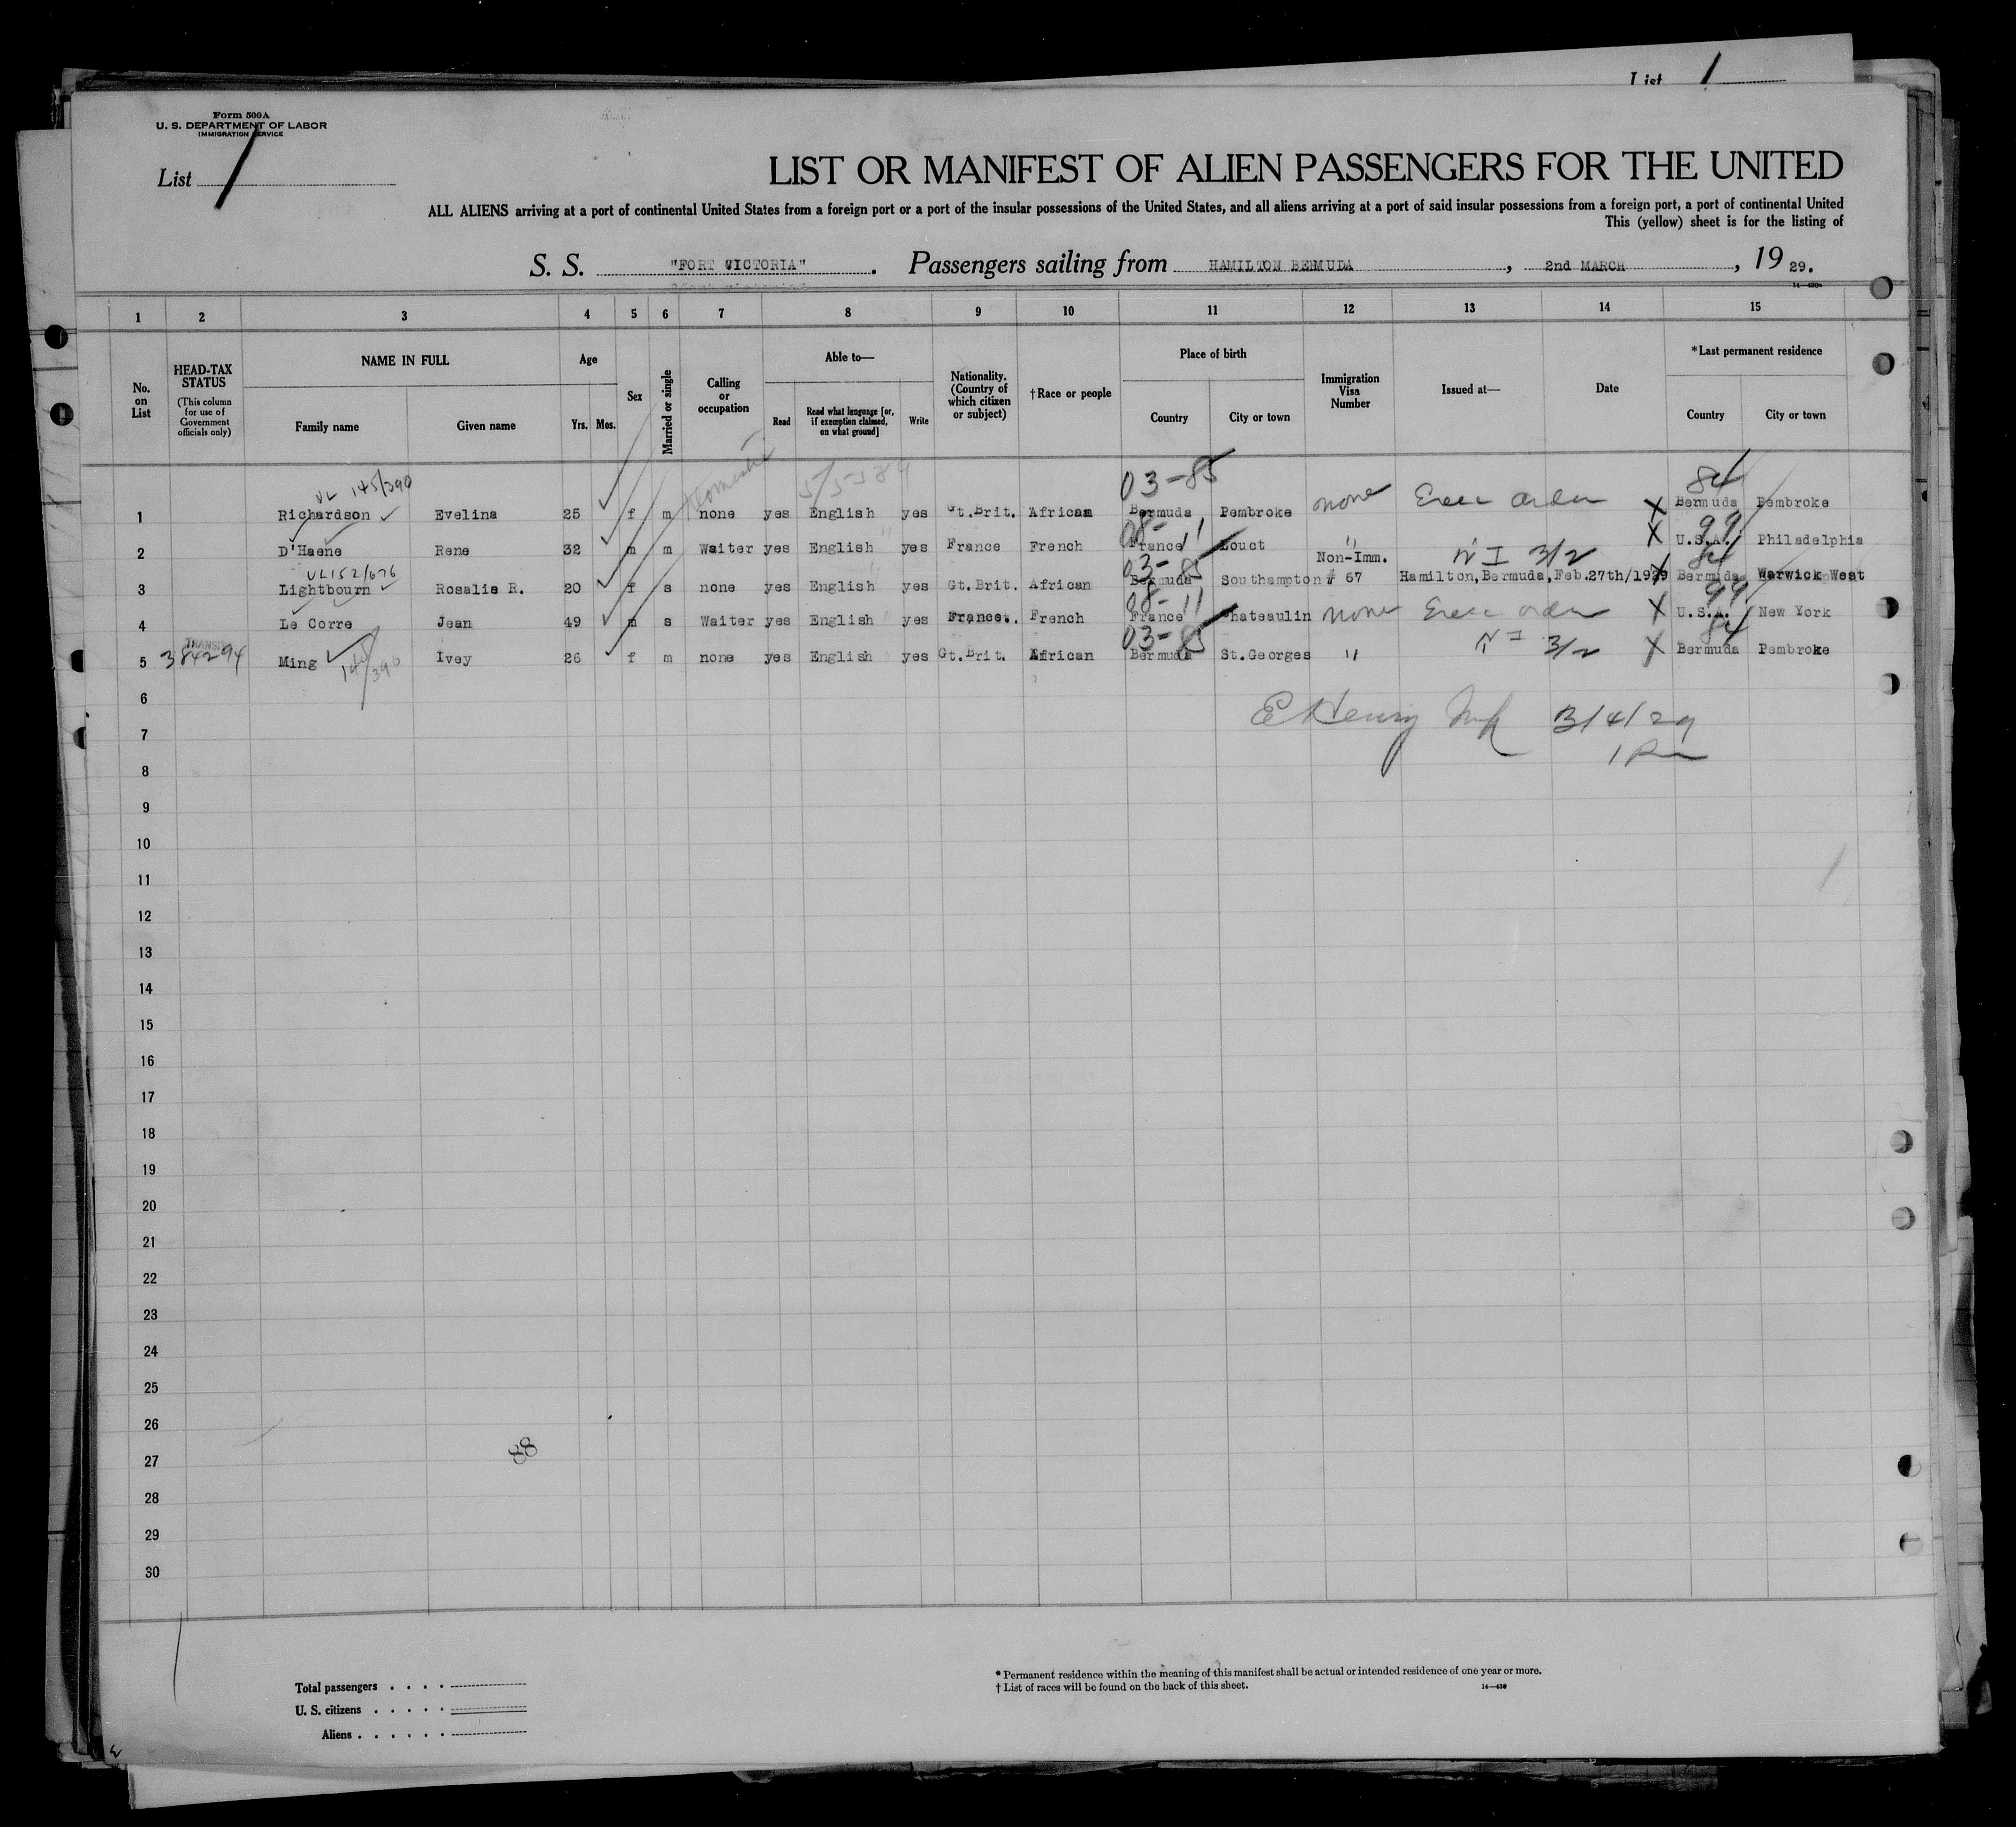 List 1
Form 500A
U. S. DEPARTMENT OF LABOR
IMMIGRATION SERVICE
List 1
LIST OR MANIFEST OF ALIEN PASSENGERS FOR THE UNITED
ALL ALIENS arriving at a port of continental United States from a foreign port or a port of the insular possessions of the United States, and all aliens arriving at a port of said insular possessions from a foreign port, a port of continental United
This (yellow) sheet is for the listing of
S. S. "FORT VICTORIA" . Passengers sailing from HAMILTON BERMUDA , 2nd MARCH , 19 29.
1 2 3 4 5 6 7 8 9 10 11 12 13 14 15
No. on List HEAD-TAX STATUS (This column for use of Government officials only) NAME IN FULL Family name Given name Age Yrs. Mos. Sex Married or single Calling or occupation Able to— Read Read what language [or, if exemption claimed, on what ground] Write Nationality. (Country of which citizen or subject) †Race or people Place of birth Country City or town Immigration Visa Number Issued at— Date *Last permanent residence Country City or town
VL 145/390 03-85 84
1 Richardson Evelina 25 f m none yes English yes Gt.Brit. African Bermuda Pembroke none Exec order X Bermuda Pembroke
08-11 99
2 D'Haene Rene 32 m m Waiter yes English yes France French France Louct " N I 3/2 X U.S.A. Philadelphia
VL152/676 03-85 Non-Imm. 84
3 Lightbourn Rosalie R. 20 f s none yes English yes Gt.Brit. African Bermuda Southampton # 67 Hamilton,Bermuda,Feb.27th/1929 X Bermuda Warwick West
08-11 99
4 Le Corre Jean 49 m s Waiter yes English yes France. French France Chateaulin none Exec order X U.S.A. New York
TRANSIT 03-85 84
5 384294 Ming Ivey 26 f m none yes English yes Gt.Brit. African Bermuda St.Georges " N I 3/2 X Bermuda Pembroke
6
7 E Henry 3/4/29
8
9
10
11
12
13
14
15
16
17
18
19
20
21
22
23
24
25
26
27 88
28
29
30
Total passengers
U. S. citizens
Aliens
* Permanent residence within the meaning of this manifest shall be actual or intended residence of one year or more.
† List of races will be found on the back of this sheet. 14—430